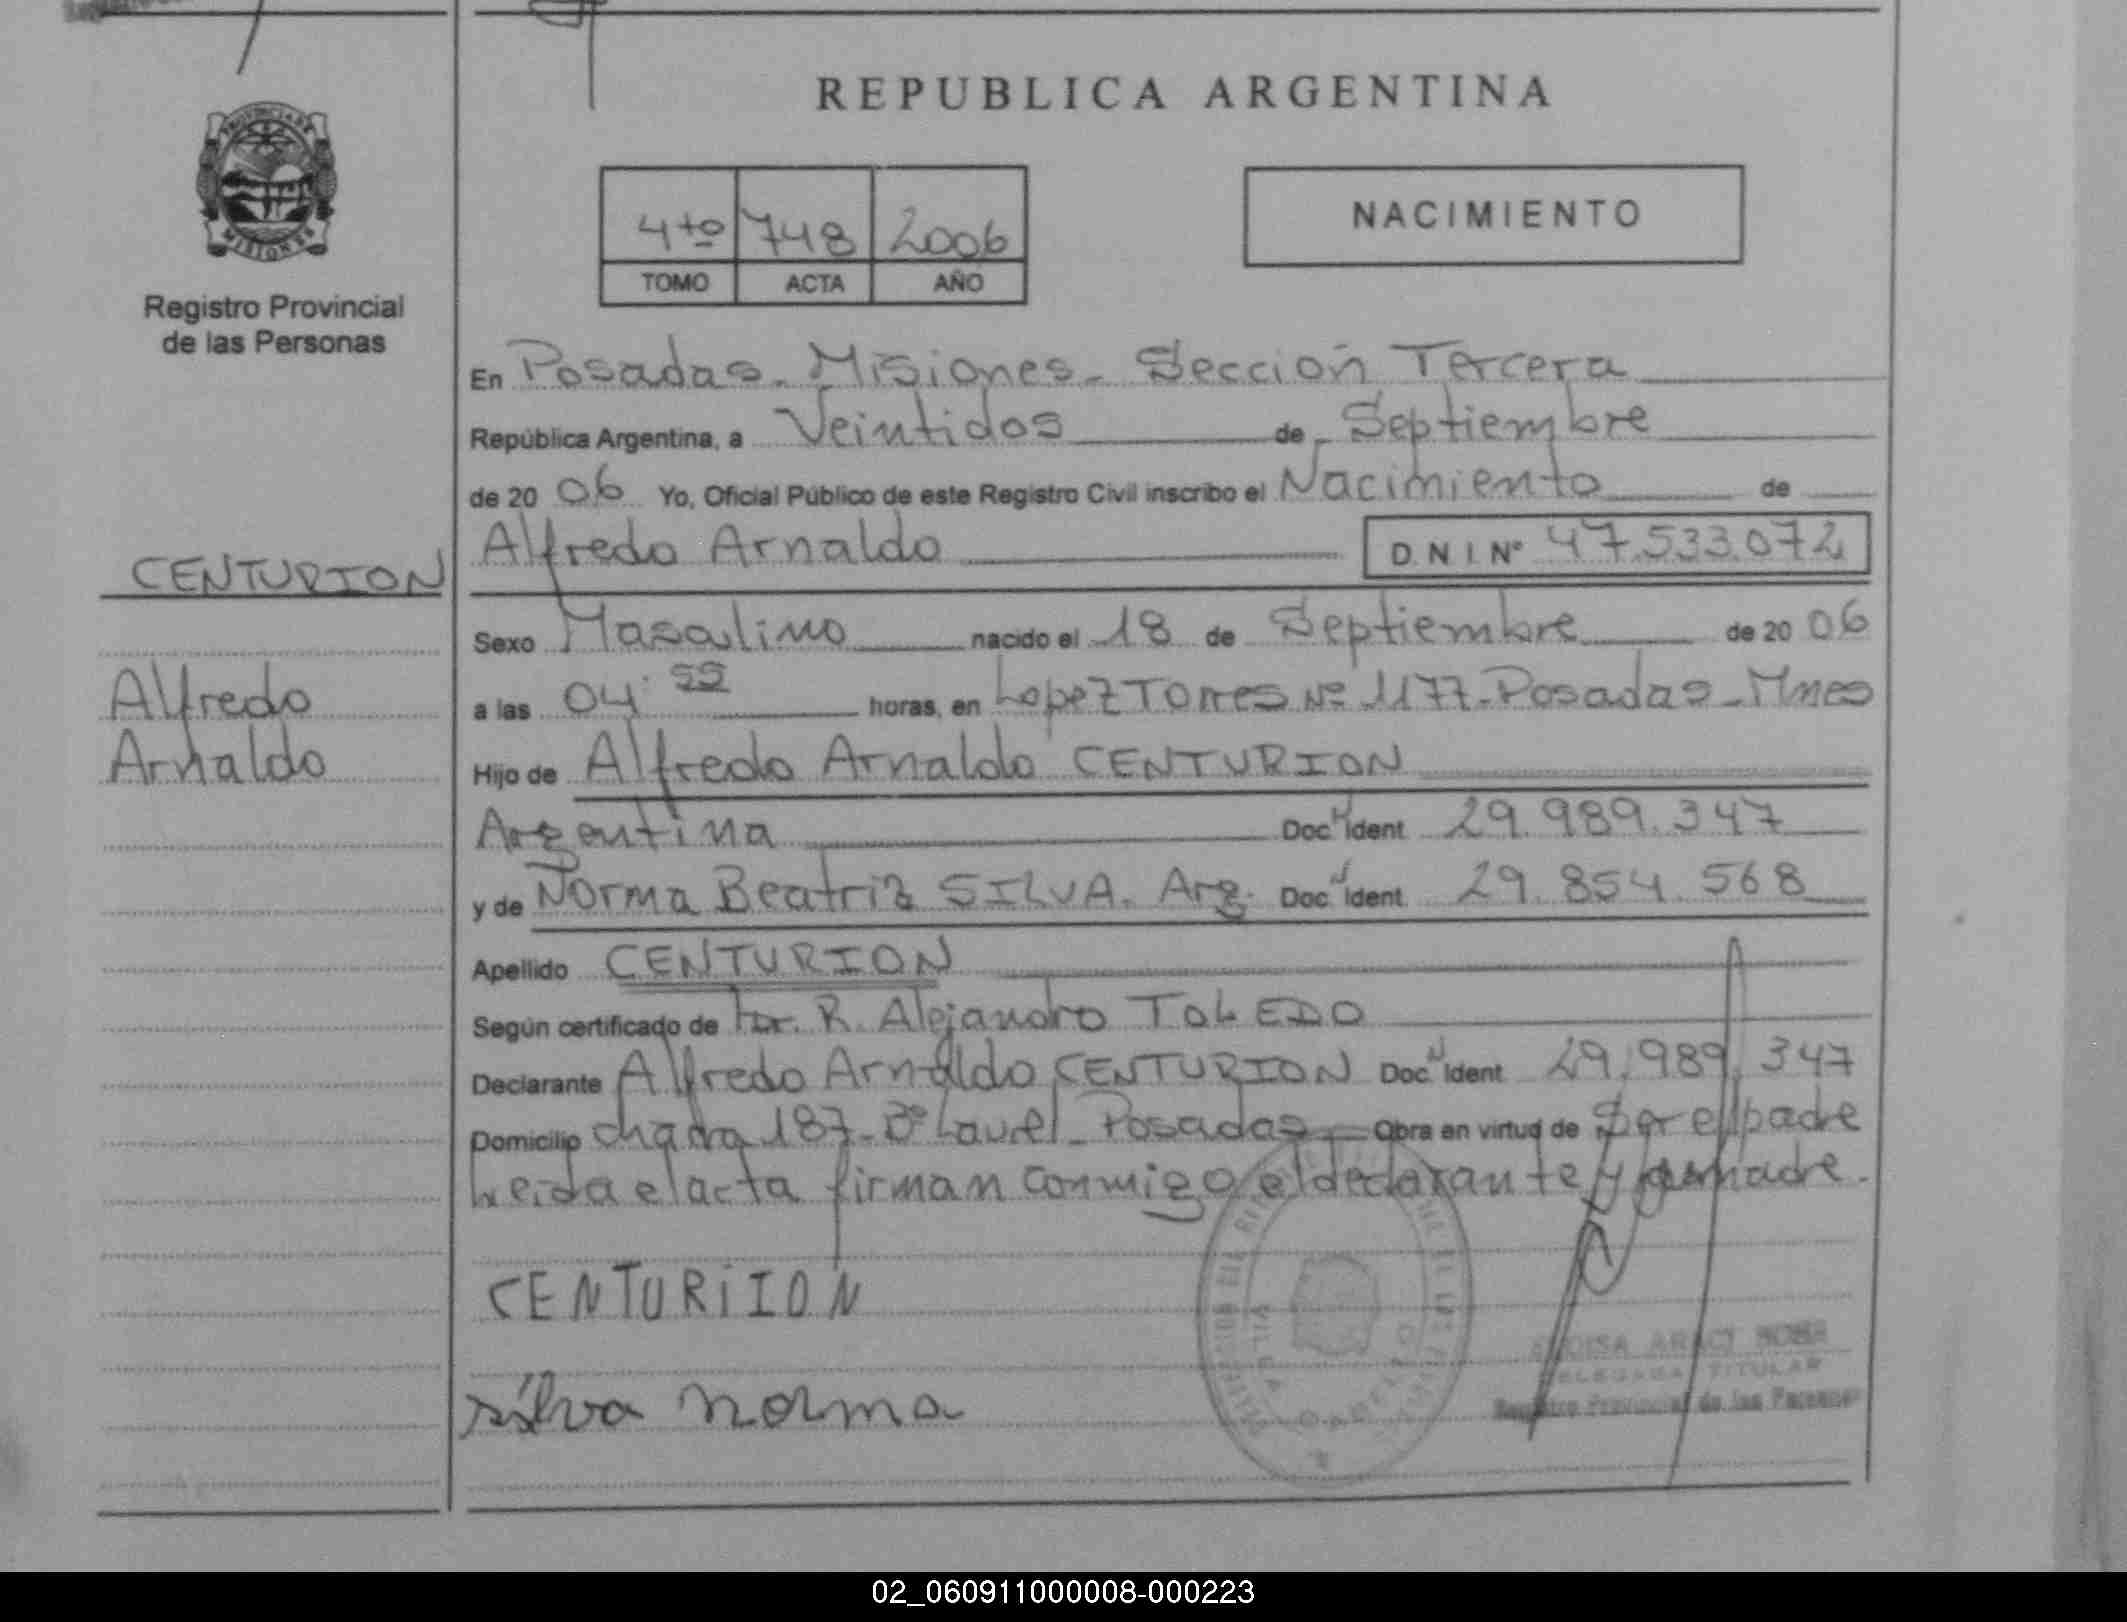 REPUBLICA ARGENTINA
PROVINCIA DE
MISIONES
Registro Provincial
de las Personas
4to 748 2006
TOMO ACTA AÑO
NACIMIENTO
En Posadas - Misiones - Sección Tercera
República Argentina, a Veintidos de Septiembre
de 20 06 Yo, Oficial Público de este Registro Civil inscribo el Nacimiento de
CENTURION
Alfredo
Arnaldo
Alfredo Arnaldo D.N.I. Nº 47.533.072
Sexo Masculino nacido el 18 de Septiembre de 20 06
a las 04 55 horas, en Lopez Torres Nº 1177 - Posadas - Mnes
Hijo de Alfredo Arnaldo CENTURION
Argentina Doc. Ident 29.989.347
y de Norma Beatriz SILVA. Arg. Doc. Ident 29.854.568
Apellido CENTURION
Según certificado de R. Alejandro TOLEDO
Declarante Alfredo Arnaldo CENTURION Doc. Ident 29.989.347
Domicilio chacra 187 - Bº Laurel - Posadas Obra en virtud de Ser el padre
Leida el acta firman conmigo el declarante y madre.
CENTURIION
silva norma
DELEGADA TITULAR
Registro Provincial de las Personas
02_060911000008-000223